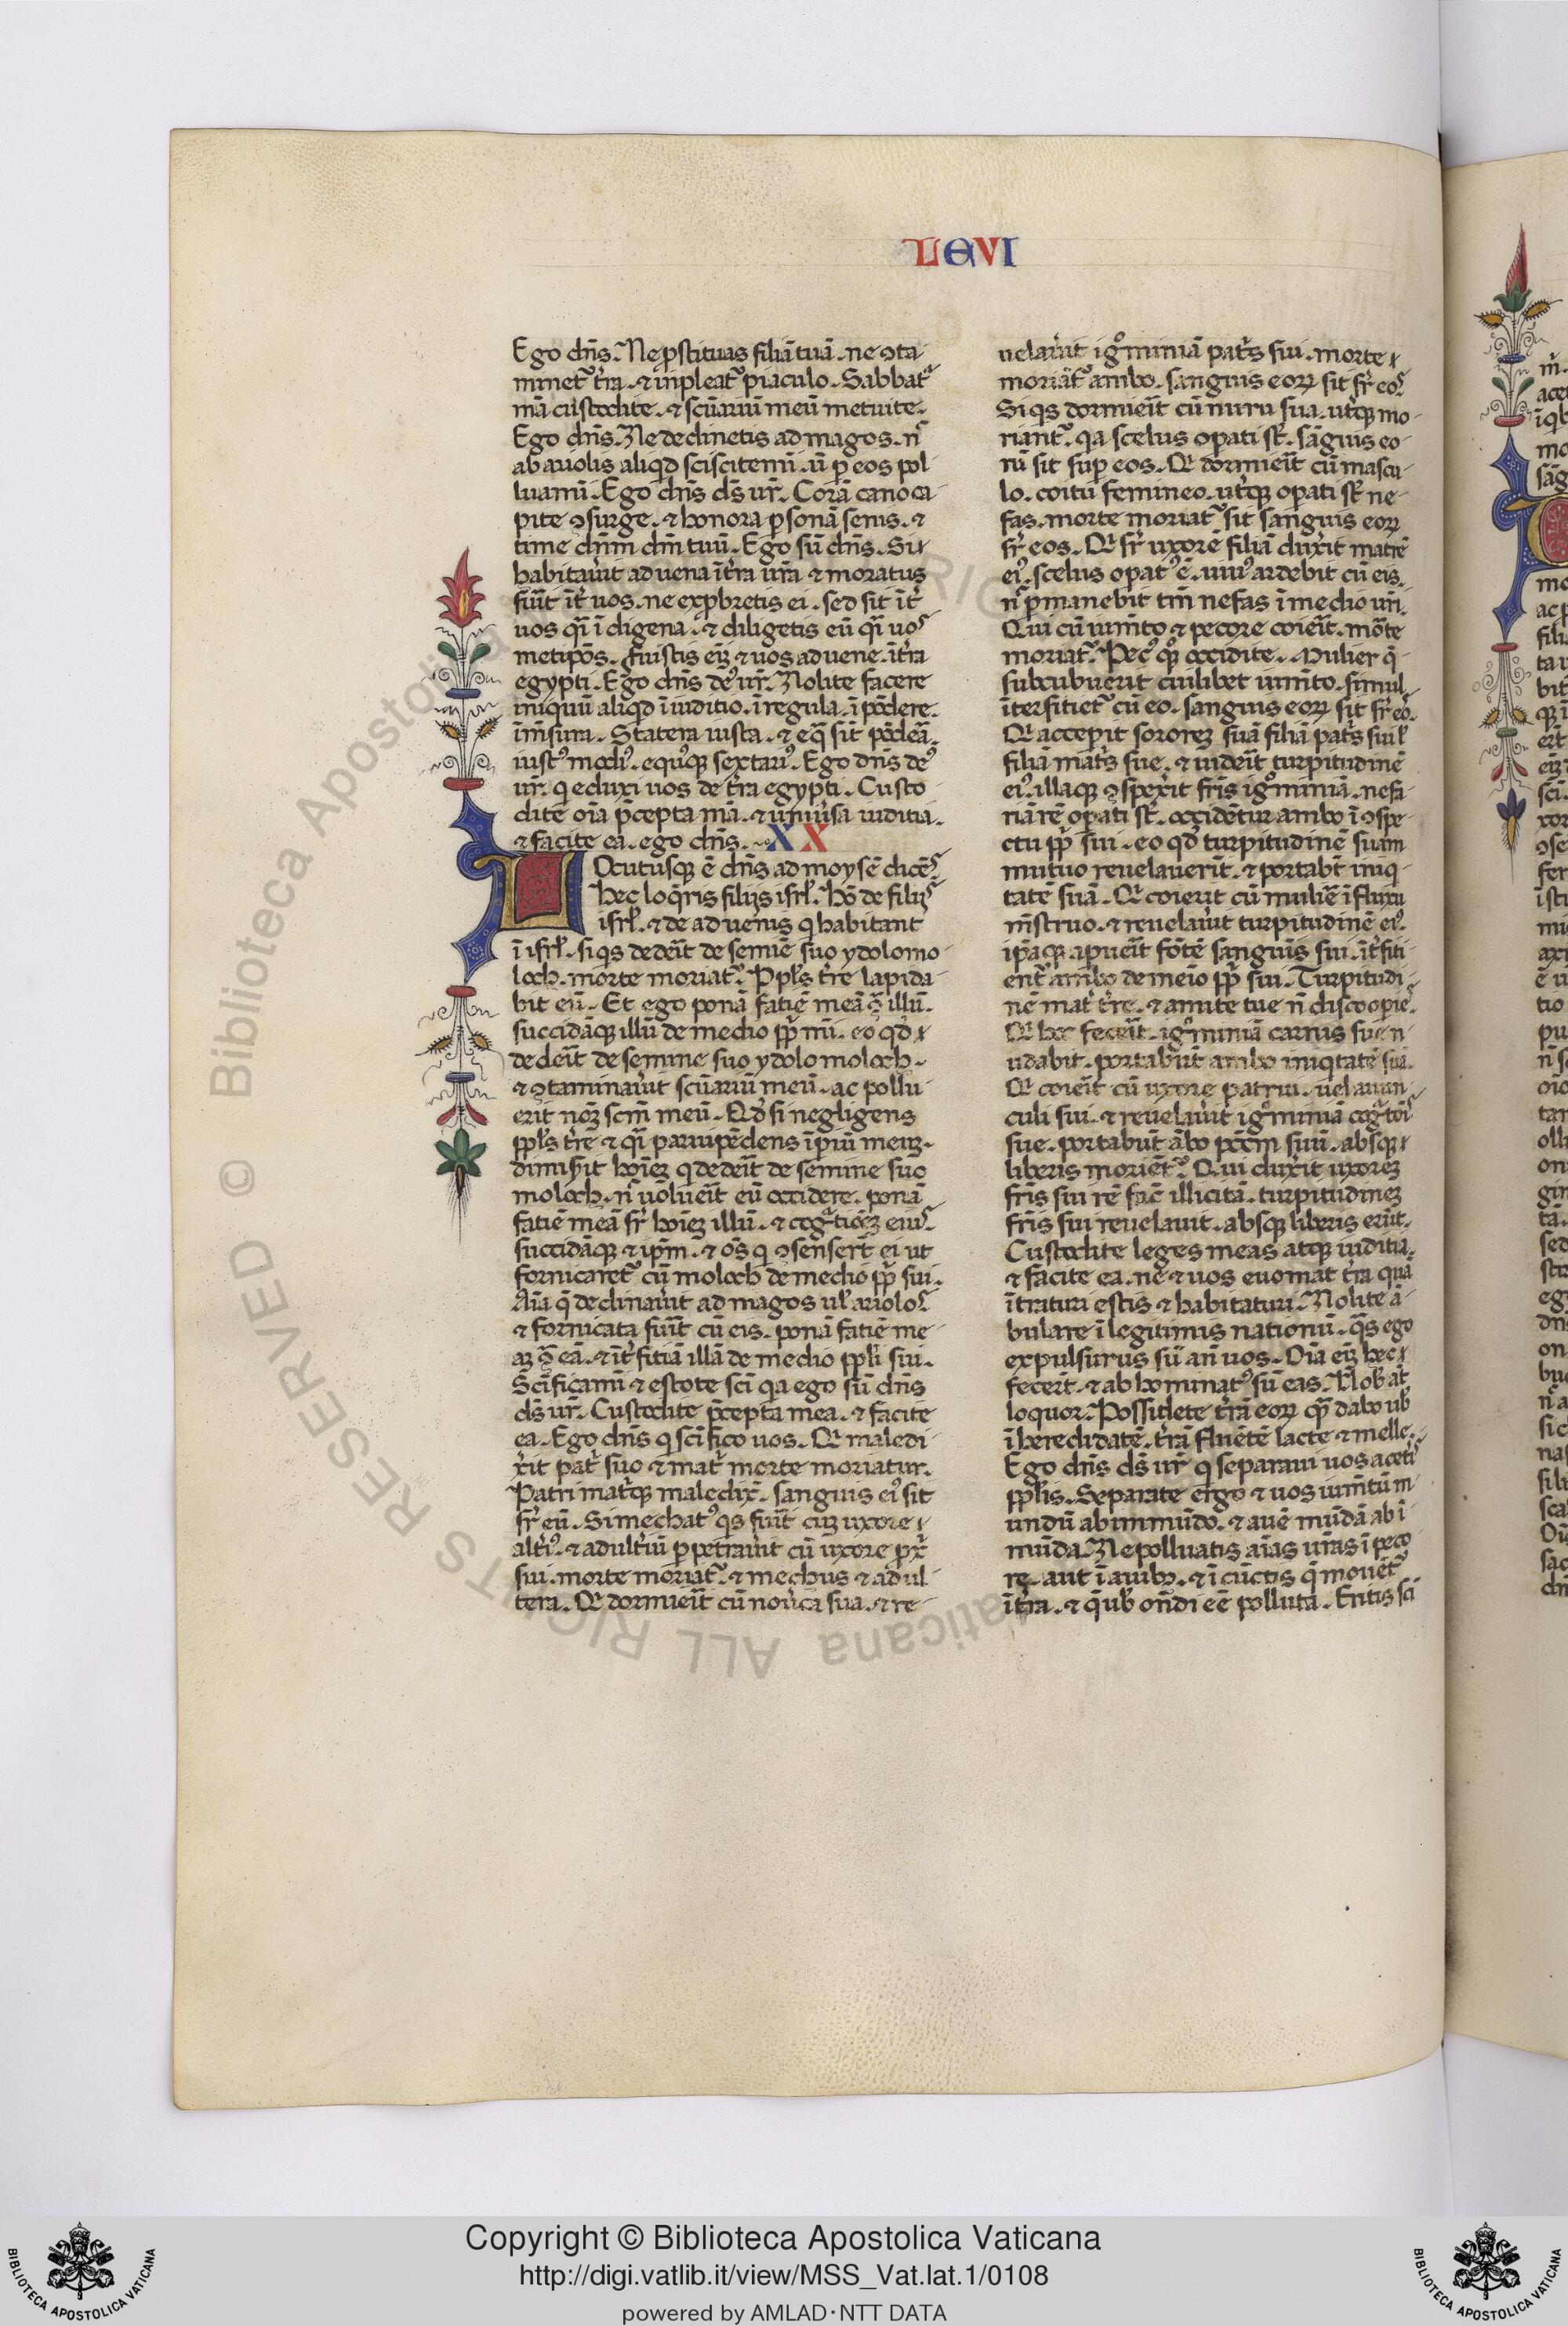 LEVI
Ego dn̄s. Ne p̱stituas filiā tuā. ne ↄta-
minetᷣ t̄ra. ⁊ inpleatᷣ piaculo. Sabbatᵃ
mā custodite. ⁊ scūariū meū metuite.
Ego dn̄s. Ne declinetis ad magos. nᶜ
ab ariolis aliqd̄ sciscitemī. ū p̱ eos pol-
luamī. Ego dn̄s ds̄ ur̄. Corā cano ca-
pite ↄsurge. ⁊ honora p̱sonā senis. ⁊
time dn̄m dm̄ tuū. Ego sū dn̄s. Si
habitau̓it aduena ī t̄ra ur̄a ⁊ moratus
fūit īt̓ uos. ne exp̱bretis ei. sed sit īt̓
uos qi̓ īdigena. ⁊ diligetis eū qi̓ uoˢ
metip̄os. Fuistis eī ⁊ uos aduene ī t̄ra
egypti. Ego dn̄s deꝰ ur̄. Nolite facere
iniquū aliqd̄ ī iuditio. ī regula. ī pōdere.
ī m̄sura. Statera iusta. ⁊ eq̄ sīt pōdea̓.
iustꝰ modiꝰ. equꝰqꝫ sextariꝰ. Ego dn̄s deꝰ
ur̄. q eduxi uos de t̄ra egypti. Custo
dite oīa p̄cepta mā. ⁊ uniu̓sa iuditia.
⁊ facite ea. ego dn̄s. XX
Locutusqꝫ ē dn̄s ad moysē dicēˢ
Hec loq̄ris filijs isrl̓. Hō de filijˢ
isrl̓. ⁊ de aduenis q habitant
ī isrl̓. si qs dedēit de semiē suo ydolo mo
loch. morte moriatᷣ. Ppl̓s t̄re lapida
bit eū. Et ego ponā fatiē meā ↄ̄ illū.
succidāqꝫ illū de medio pp̄li mī. eo qd̄
dedēit de semine suo ydolo moloch.
⁊ ↄtaminau̓it scūariū meū. ac pollu
erit nom̄ scm̄ meū. Qd̄ si negligens
ppl̓s t̄re ⁊ qi̓ paruipēdens īpiū meuꝫ.
dimis̓it hoīeꝫ q dedēit de semine suo
moloch. nᶜ uoluēit eū occidere. ponā
fatiē meā sr̄ hoīeꝫ illū. ⁊ cogᵃtiōeꝫ eiuˢ.
succidāqꝫ ⁊ ip̄m. ⁊ oēs q ↄsenser̄t ei ut
fornicaretᷣ cū moloch de medio pp̄li sui.
Aīa q̄ declinau̓it ad magos ul̓ arioloˢ
⁊ fornicata fūit cū eis. ponā fatiē me
aꝫ ↄ̄ eā. ⁊ īt̓fitiā illā de medio ppl̓i sui.
Scīficamī ⁊ estote scī qa ego sū dn̄s
ds̄ ur̄. Custodite p̄cepta mea. ⁊ facite
ea. Ego dn̄s q scīfico uos. Qi̓ maledi
x̓it pat̓ suo ⁊ mat̓ morte moriatur.
Patri mat̓qꝫ maledix̄. sanguis eiꝰ sit
sr̄ eū. Si mechatꝰ qs fūit cuꝫ uxore
alt̓iꝰ. ⁊ adult̓iū p̱petrau̓it cū uxore p̱x̄
sui. morte moriātᷣ. ⁊ mechus ⁊ adul-
tera. Qi̓ dormiēit cū nou̓ca sua. ⁊ re-
uelau̓it igᵒminiā pat̓s sui. morte
moriātᷣ ambo. sanguis eoꝝ sit sr̄ eoˢ
Si qs dormiēit cū nuru sua. ut̓qꝫ mo-
riantᷣ. qa scelus opati st̄. sāguis eo-
rū sit sup̱ eos. Qi̓ dormiēit cū mascu-
lo. coitu femineo. ut̓qꝫ opati st̄ ne-
fas. morte moriatᷣ sit sanguis eoꝝ
sr̄ eos. Qi̓ sr̄ uxore filiā dux̓it matrē
eiꝰ. scelus opatꝰ ē. uiuꝰ ardebit cū eis.
nᶜ p̱manebit tm̄ nefas ī medio ur̄i.
Qui cū ium̄to ⁊ pecore coiēit. mōte
moriatᷣ. Pecꝰ qꝫ occidite. Mulier q̄
subcubuerit cuilibet ium̄to. simul
īterfitietᷣ cū eo. sanguis eoꝝ sit sr̄ eoˢ.
Qi̓ acceperit sororeꝫ suā filiā pat̓s sui ul̓
filiā mat̓s sue. ⁊ uidēit turpitudinē
eiꝰ. illaqꝫ ↄspex̓it fr̄is igᵒminiā. nefa-
riā rē opati st̄. occidētur ambo ī ↄspe-
ctu pp̄li sui. eo qd̄ turpitudinē suam
mutuo reuelauerīt. ⁊ portabt̄ iniq-
tatē suā. Qi̓ coierit cū muliēe ī fluxu
m̄struo. ⁊ reuelau̓it turpitudinē eiꝰ.
ip̄aqꝫ apuēit fōtē sanguīs sui. īt̓fiti-
entᷣ ambo de meīo pp̄li sui. Turpitudi-
nē mat̓t̓re. ⁊ amite tue n̄ discoopieˢ.
Qi̓ hoc fecēit. igᵒminiā carnis sue n
udabit. portabūt ambo iniqtatē suā.
Qi̓ coiēit cū uxore patrui. uel auun-
culi sui. ⁊ reuelau̓it igᵒminiā cogᵃtōiˢ
sue. portabūt ābo pccm̄ suū. absqꝫ
liberis moriētᷣ. Qui dux̓it uxoreꝫ
fr̄is sui rē fac̄ illicitā. turpitudineꝫ
fr̄is sui reuelauit. absqꝫ liberis erūt.
Custodite leges meas atqꝫ iuditia.
⁊ facite ea. ne ⁊ uos euomat t̄ra quā
ītraturi estis ⁊ habitaturi. Nolite ā-
bulare ī legitimis nationū. q̄s ego
expulsurus sū an̄ uos. Oīa eī hec
fecer̄t. ⁊ abhominatꝰ sū eas. Uob̓ at̄
loquor. Possidete t̄rā eoꝝ qᵃ dabo ub̓
ī heredidatē. t̄rā fluētē lacte ⁊ melle.
Ego dn̄s ds̄ ur̄ q separaui uos a cet̓iˢ
ppl̓is. Separate ergo ⁊ uos ium̄tū m-
undū ab inmūdo. ⁊ auē mūdā ab ī-
mūda. Ne polluatis aīas ur̄as ī peco
re. aut ī auibꝫ. ⁊ ī cūctis q̄ mouētᷣ
ī t̄ra. ⁊ q̄ ub̓ on̄di eē polluta. Eritis sci
Copyright © Biblioteca Apostolica Vaticana
http://digi.vatlib.it/view/MSS_Vat.lat.1/0108
powered by AMLAD·NTT DATA
BIBLIOTECA APOSTOLICA VATICANA
BIBLIOTECA APOSTOLICA VATICANA